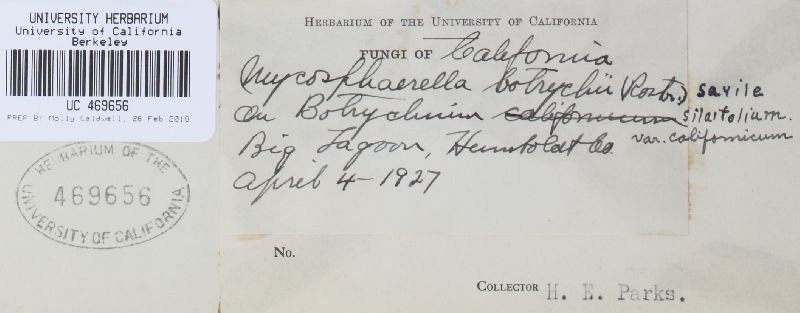 UNIVERSITY HERBARIUM
University of California
Berkeley
UC 469656
PREP BY Molly Caldwell, 26 Feb 2018
HERBARIUM OF THE
469656
UNIVERSITY OF CALIFORNIA
HERBARIUM OF THE UNIVERSITY OF CALIFORNIA
FUNGI OF California
Mycosphaerella botrychii (Rostr.) savile
On Botrychium californicum silaifolium.
var. californicum
Big Lagoon, Humboldt Co.
April 4-1927
No.
COLLECTOR H. E. Parks.